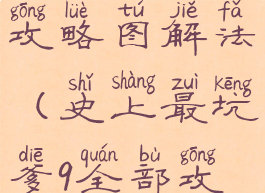 gōng lüè tú jiě fǎ
攻略图解法
shǐ shàng zuì kēng
(史上最坑
diē quán bù gōng
爹9全部攻